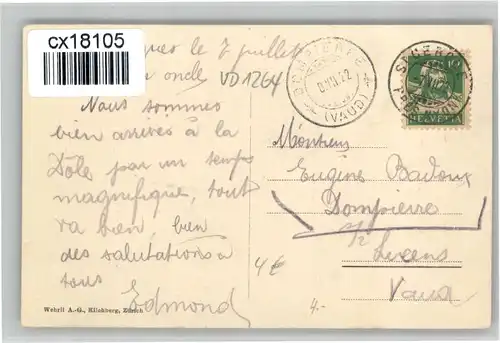 cx18105
le 7 juillet
oncle VD 1264
Nous sommes
bien arrivés à la
Dôle par un temps
magnifique, tout
va bien, bien
des salutations à
tous
Edmond
DOMPIERRE
VII.22
(VAUD)
10
HELVETIA
Monsieur
Eugène Badoux
Dompierre
s/Lucens
Vaud
4€
4.-
Wehrli A.-G., Kilchberg, Zürich